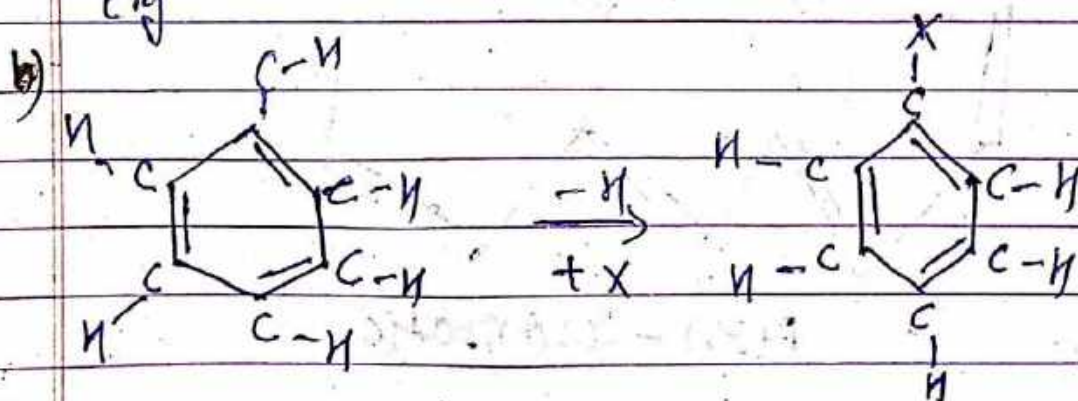 b)
C-H
H-C
C-H
C-H
H-C
C-H
-H
+X
X
C
H-C
C-H
H-C
C-H
C
H